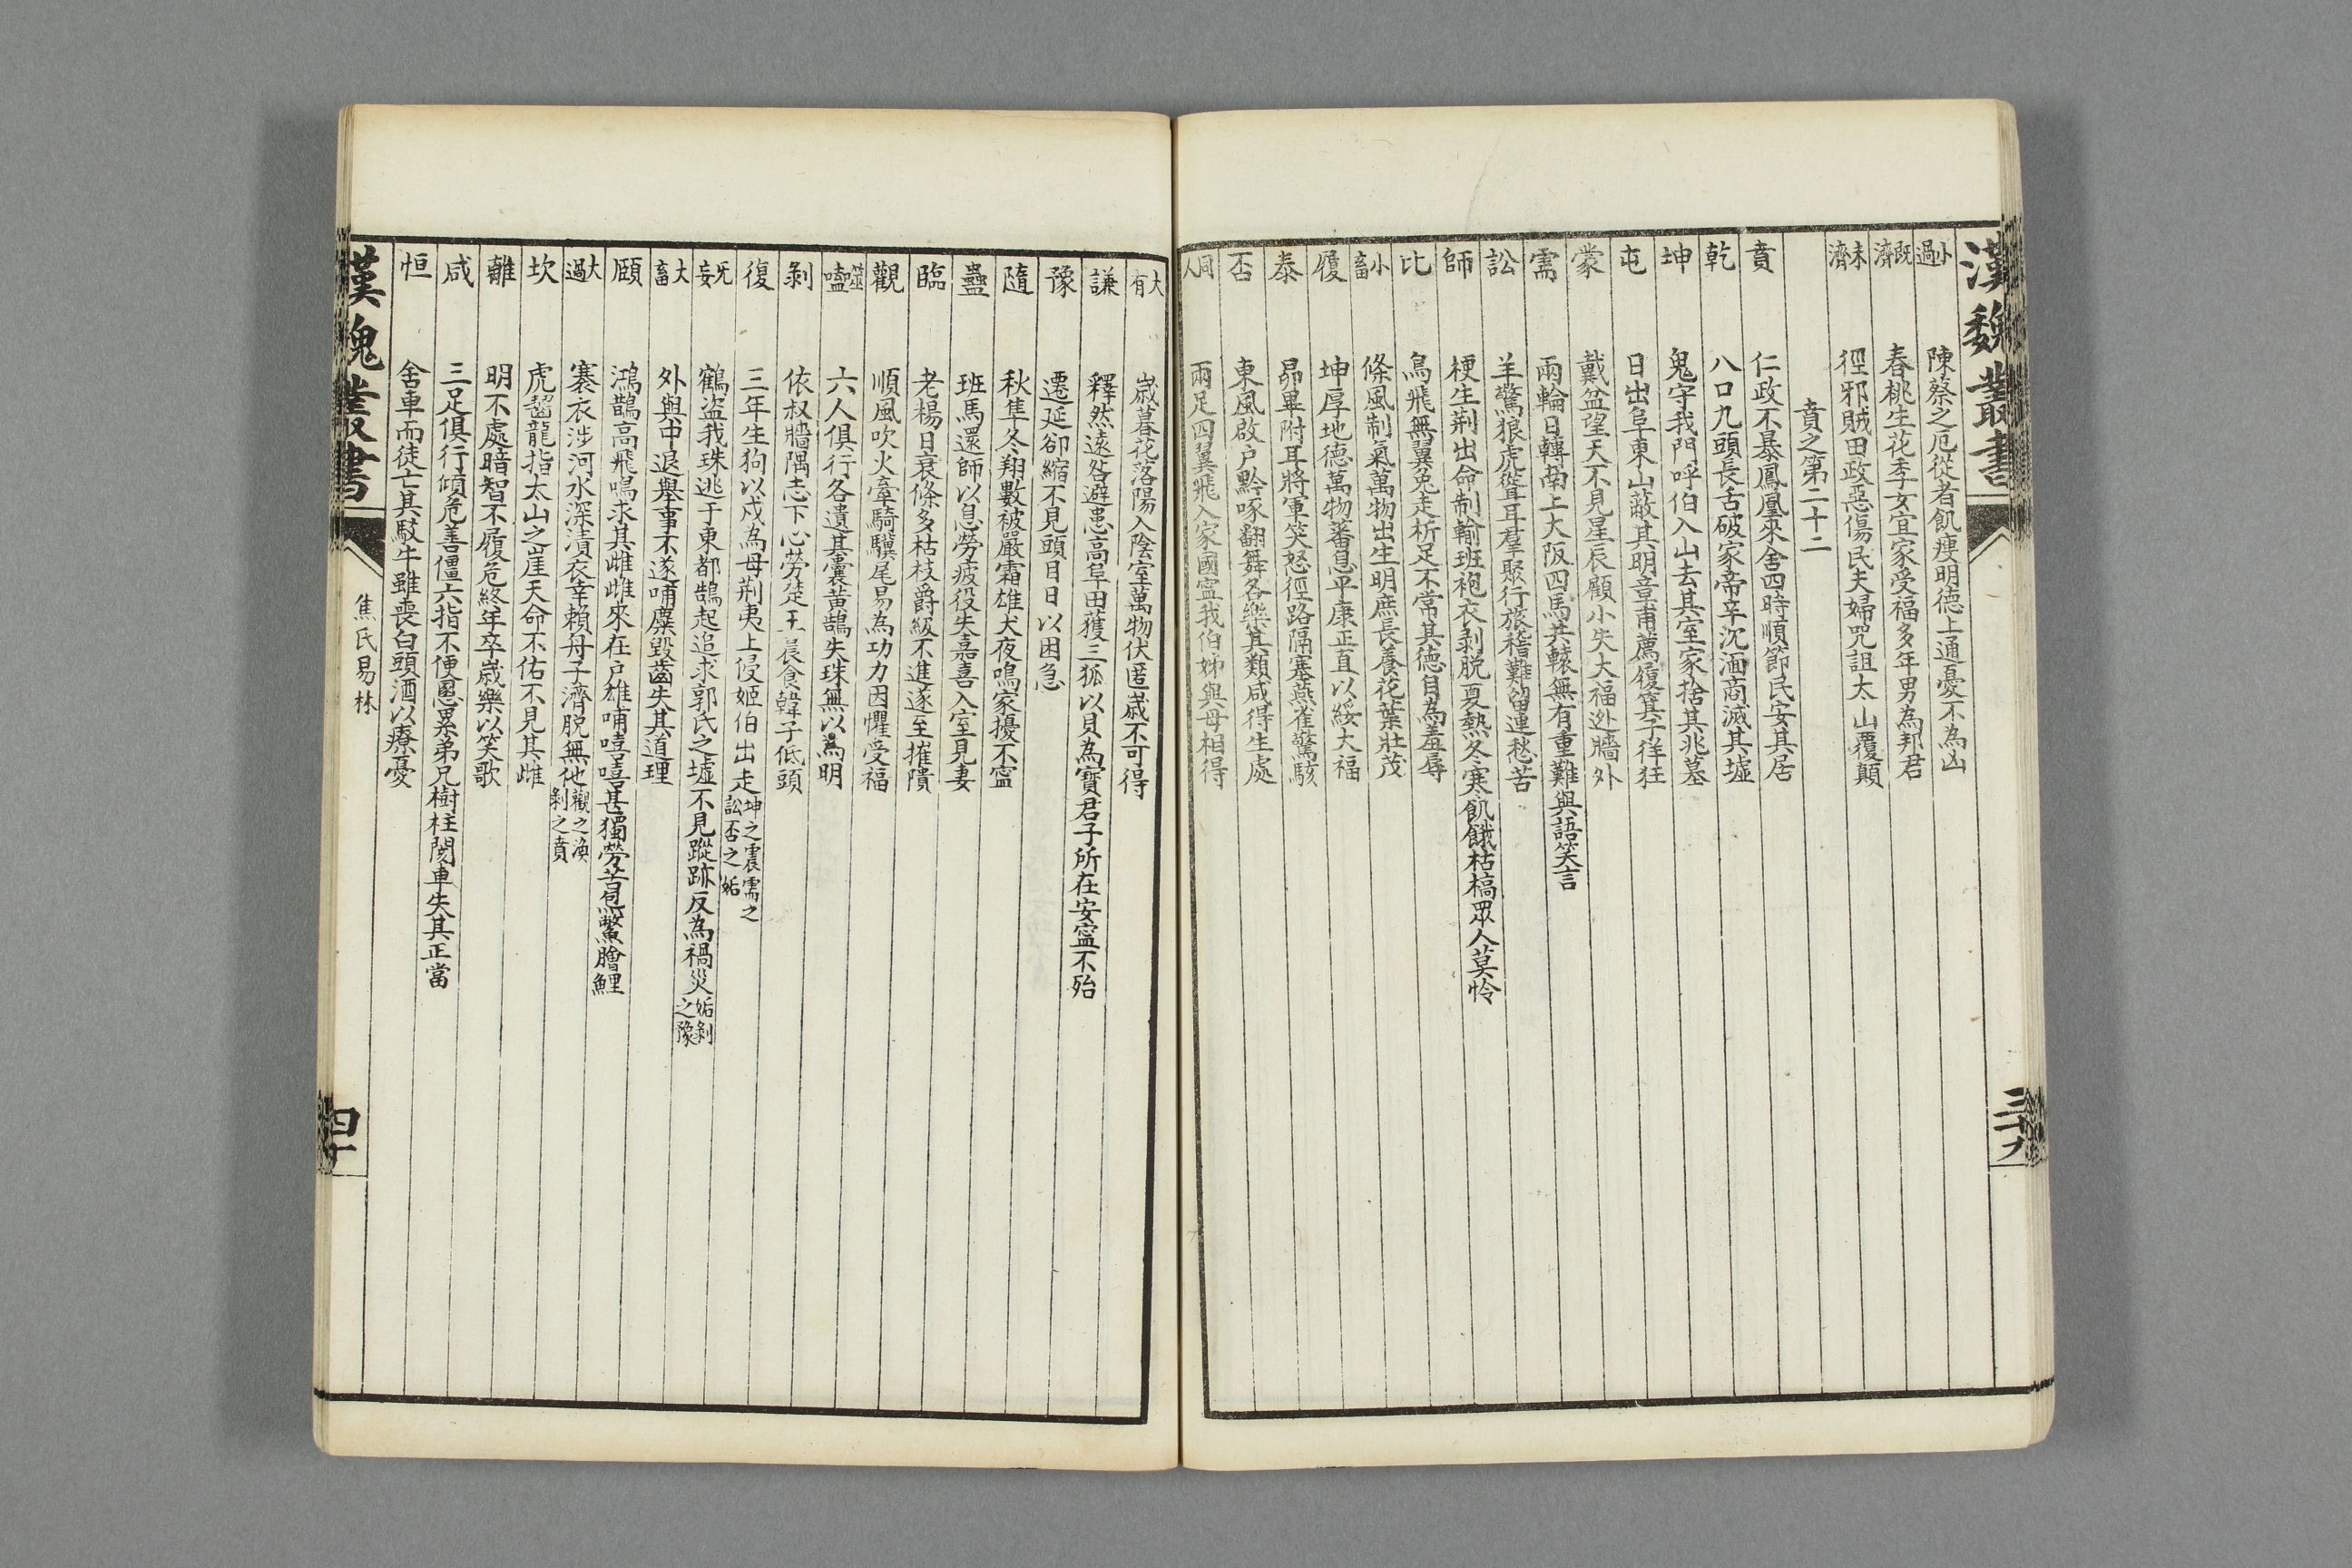 漢魏叢書
三十九
小過 陳蔡之厄從者飢㾏明德上通憂不為凶
既濟 春桃生花季女宜家受福多年男為邦君
未濟 徑邪賊田政惡傷民夫婦咒詛太山覆顛
賁之第二十二
賁 仁政不暴鳳凰來舍四時順節民安其居
乾 八口九頭長舌破家帝辛沈湎商滅其墟
坤 鬼守我門呼伯入山去其室家捨其兆墓
屯 日出阜東山蔽其明章甫薦履箕子徉狂
蒙 戴盆望天不見星辰顧小失大福逃牆外
需 兩輪日轉南上大阪四馬共轅無有重難與語笑言
訟 羊驚狼虎聳耳羣聚行旅稽難留連愁苦
師 梗生荆出命制輸班袍衣剥脱夏熱冬寒飢餓枯槁眾人莫怜
比 烏飛無翼兔走折足不常其德自為羞辱
小畜 條風制氣萬物出生明庶長養花葉壯茂
履 坤厚地德萬物蕃息平康正直以綏大福
泰 昴畢附耳將軍笑怒徑路隔塞燕雀驚駭
否 東風啟户黔啄翻舞各樂其類咸得生處
同人 兩足四翼飛入家國寧我伯姊與母相得
大有 歲暮花落陽入陰室萬物伏匿歲不可得
謙 釋然遠咎避患高阜田獲三狐以貝為寶君子所在安寧不殆
豫 遷延卻縮不見頭目日以困急
隨 秋隼冬翔數被嚴霜雄犬夜鳴家擾不寧
蠱 班馬還師以息勞疲役夫嘉喜入室見妻
臨 老楊日衰條多枯枝爵級不進遂至摧隤
觀 順風吹火牽騎驥尾易為功力因懼受福
噬嗑 六人俱行各遺其囊黃鵠失珠無以為明
剥 依叔牆隅志下心勞楚王晨食韓子低頭
復 三年生狗以戍為母荆夷上侵姬伯出走坤之震需之訟否之姤
无妄 鶴盗我珠逃于東都鵠起追求郭氏之墟不見蹤跡反為禍災姤剥之豫
大畜 外與中退舉事不遂哺麋毀齒失其道理
頤 鴻鵲高飛鳴求其雌雌來在戶雄哺嘻嘻甚獨勞苦炰鱉膾鯉
大過 褰衣涉河水深漬衣幸賴舟子濟脱無他觀之渙剥之賁
坎 虎齧龍指太山之崖天命不佑不見其雌
離 明不處暗智不履危終年卒歲樂以笑歌
咸 三足俱行傾危善僵六指不便恩累弟兄樹柱閡車失其正當
恒 舍車而徒亡其駁牛雖喪白頭酒以療憂
漢魏叢書
焦氏易林
四十